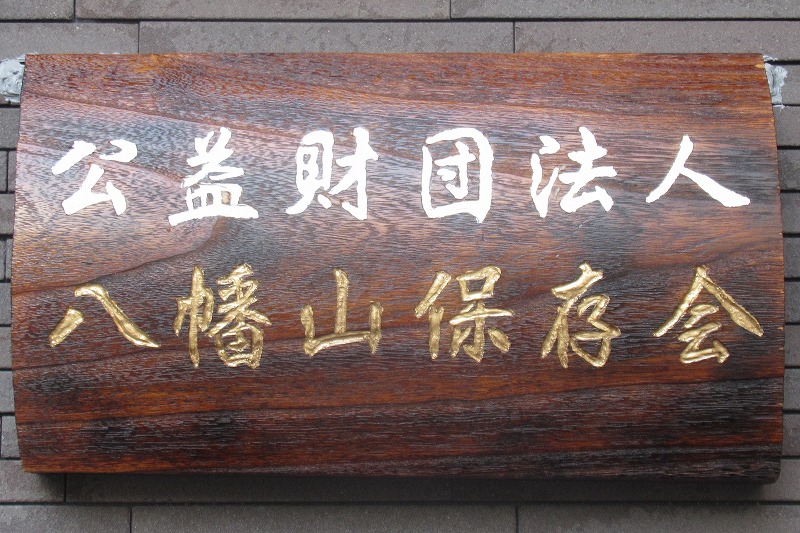 公益財団法人
八幡山保存会